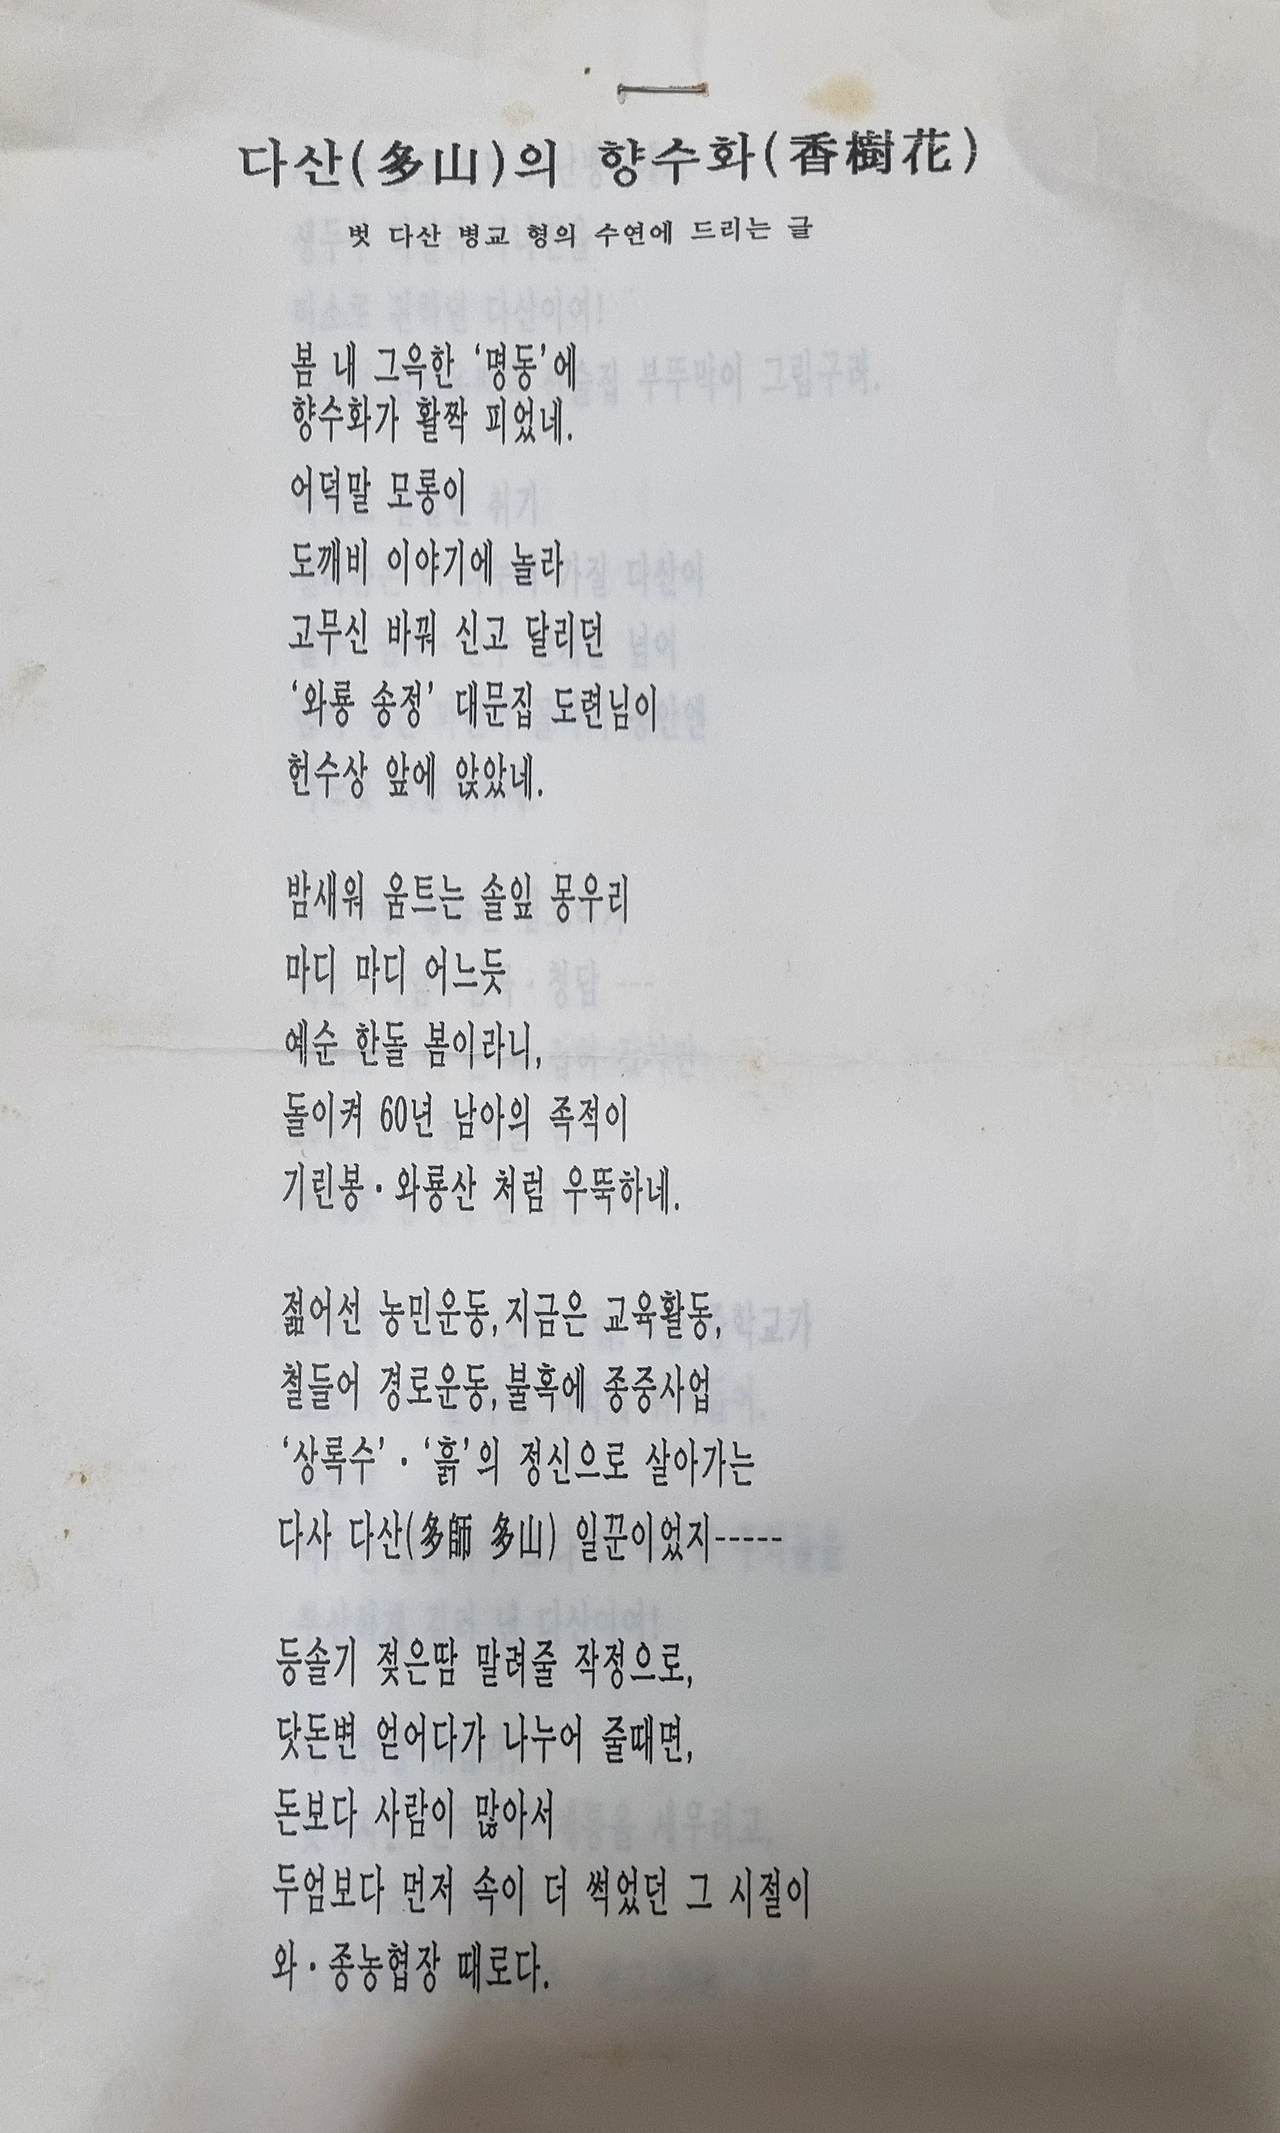 다산(多山)의 향수화(香樹花)
벗 다산 병교 형의 수연에 드리는 글
봄 내 그윽한 ‘명동’에
향수화가 활짝 피었네.
어덕말 모롱이
도깨비 이야기에 놀라
고무신 바꿔 신고 달리던
‘와룡 송정’ 대문집 도련님이
헌수상 앞에 앉았네.
밤새워 움트는 솔잎 몽우리
마디 마디 어느듯
예순 한돌 봄이라니,
돌이켜 60년 남아의 족적이
기린봉·와룡산 처럼 우뚝하네.
젊어선 농민운동,지금은 교육활동,
철들어 경로운동,불혹에 종중사업
‘상록수’·‘흙’의 정신으로 살아가는
다사 다산(多師 多山) 일꾼이었지-----
등솔기 젖은땀 말려줄 작정으로,
닷돈변 얻어다가 나누어 줄때면,
돈보다 사람이 많아서
두엄보다 먼저 속이 더 썩었던 그 시절이
와·종농협장 때로다.